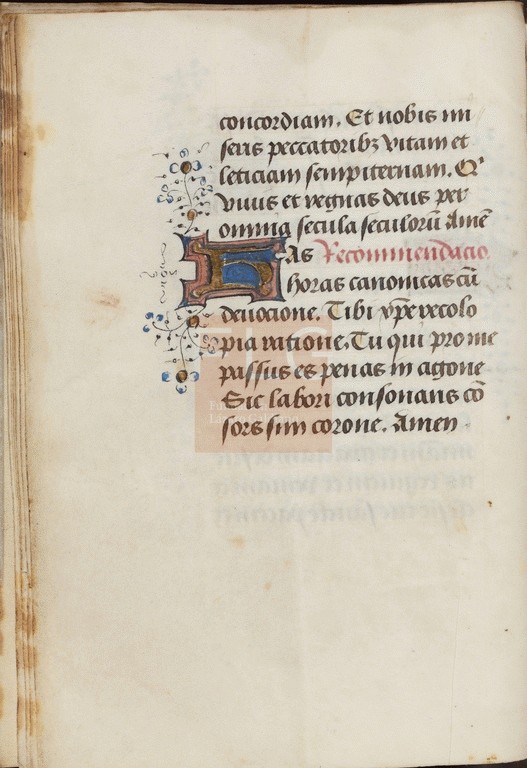 concordiam. Et nobis mi
seris peccatoribꝫ vitam et
leticiam sempiternam. Q'
viuis et regnas deus per
omnia secula seculorū Amē
HAs Recommendacio
horas canonicas cū
deuocione. Tibi xp̄e recolo
pia ratione. Tu qui pro me
passus es penas in agone
Sic labori consonans cō
sors sim corone. Amen